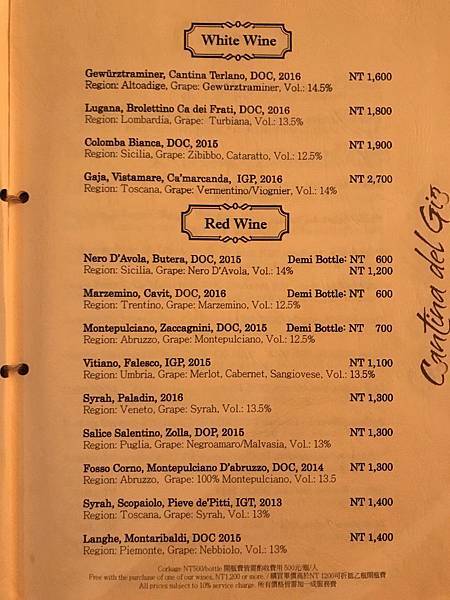 White Wine
Gewürztraminer, Cantina Terlano, DOC, 2016 NT 1,600
Region: Altoadige, Grape: Gewürztraminer, Vol.: 14.5%
Lugana, Brolettino Ca dei Frati, DOC, 2016 NT 1,800
Region: Lombardia, Grape: Turbiana, Vol.: 13.5%
Colomba Bianca, DOC, 2015 NT 1,900
Region: Sicilia, Grape: Zibibbo, Cataratto, Vol.: 12.5%
Gaja, Vistamare, Ca'marcanda, IGP, 2016 NT 2,700
Region: Toscana, Grape: Vermentino/Viognier, Vol.: 14%
Red Wine
Nero D'Avola, Butera, DOC, 2015 Demi Bottle: NT 600
Region: Sicilia, Grape: Nero D'Avola, Vol.: 14% NT 1,200
Marzemino, Cavit, DOC, 2016 Demi Bottle: NT 600
Region: Trentino, Grape: Marzemino, Vol.: 12.5%
Montepulciano, Zaccagnini, DOC, 2015 Demi Bottle: NT 700
Region: Abruzzo, Grape: Montepulciano, Vol.: 12.5%
Vitiano, Falesco, IGP, 2015 NT 1,100
Region: Umbria, Grape: Merlot, Cabernet, Sangiovese, Vol.: 13.5%
Syrah, Paladin, 2016 NT 1,300
Region: Veneto, Grape: Syrah, Vol.: 13.5%
Salice Salentino, Zolla, DOP, 2015 NT 1,300
Region: Puglia, Grape: Negroamaro/Malvasia, Vol.: 13%
Fosso Corno, Montepulciano D'abruzzo, DOC, 2014 NT 1,300
Region: Abruzzo, Grape: 100% Montepulciano, Vol.: 13.5
Syrah, Scopaiolo, Pieve de'Pitti, IGT, 2013 NT 1,400
Region: Toscana, Grape: Syrah, Vol.: 13%
Langhe, Montaribaldi, DOC 2015 NT 1,400
Region: Piemonte, Grape: Nebbiolo, Vol.: 13%
Corkage NT500/bottle 開瓶費皆需酌收費用 500元/瓶/人
Free with the purchase of one of our wines, NT1,200 or more. / 購買單價高於NT 1200可折抵乙瓶開瓶費
All prices subject to 10% service charge. 所有價格皆需加一成服務費
Cantina del Gio